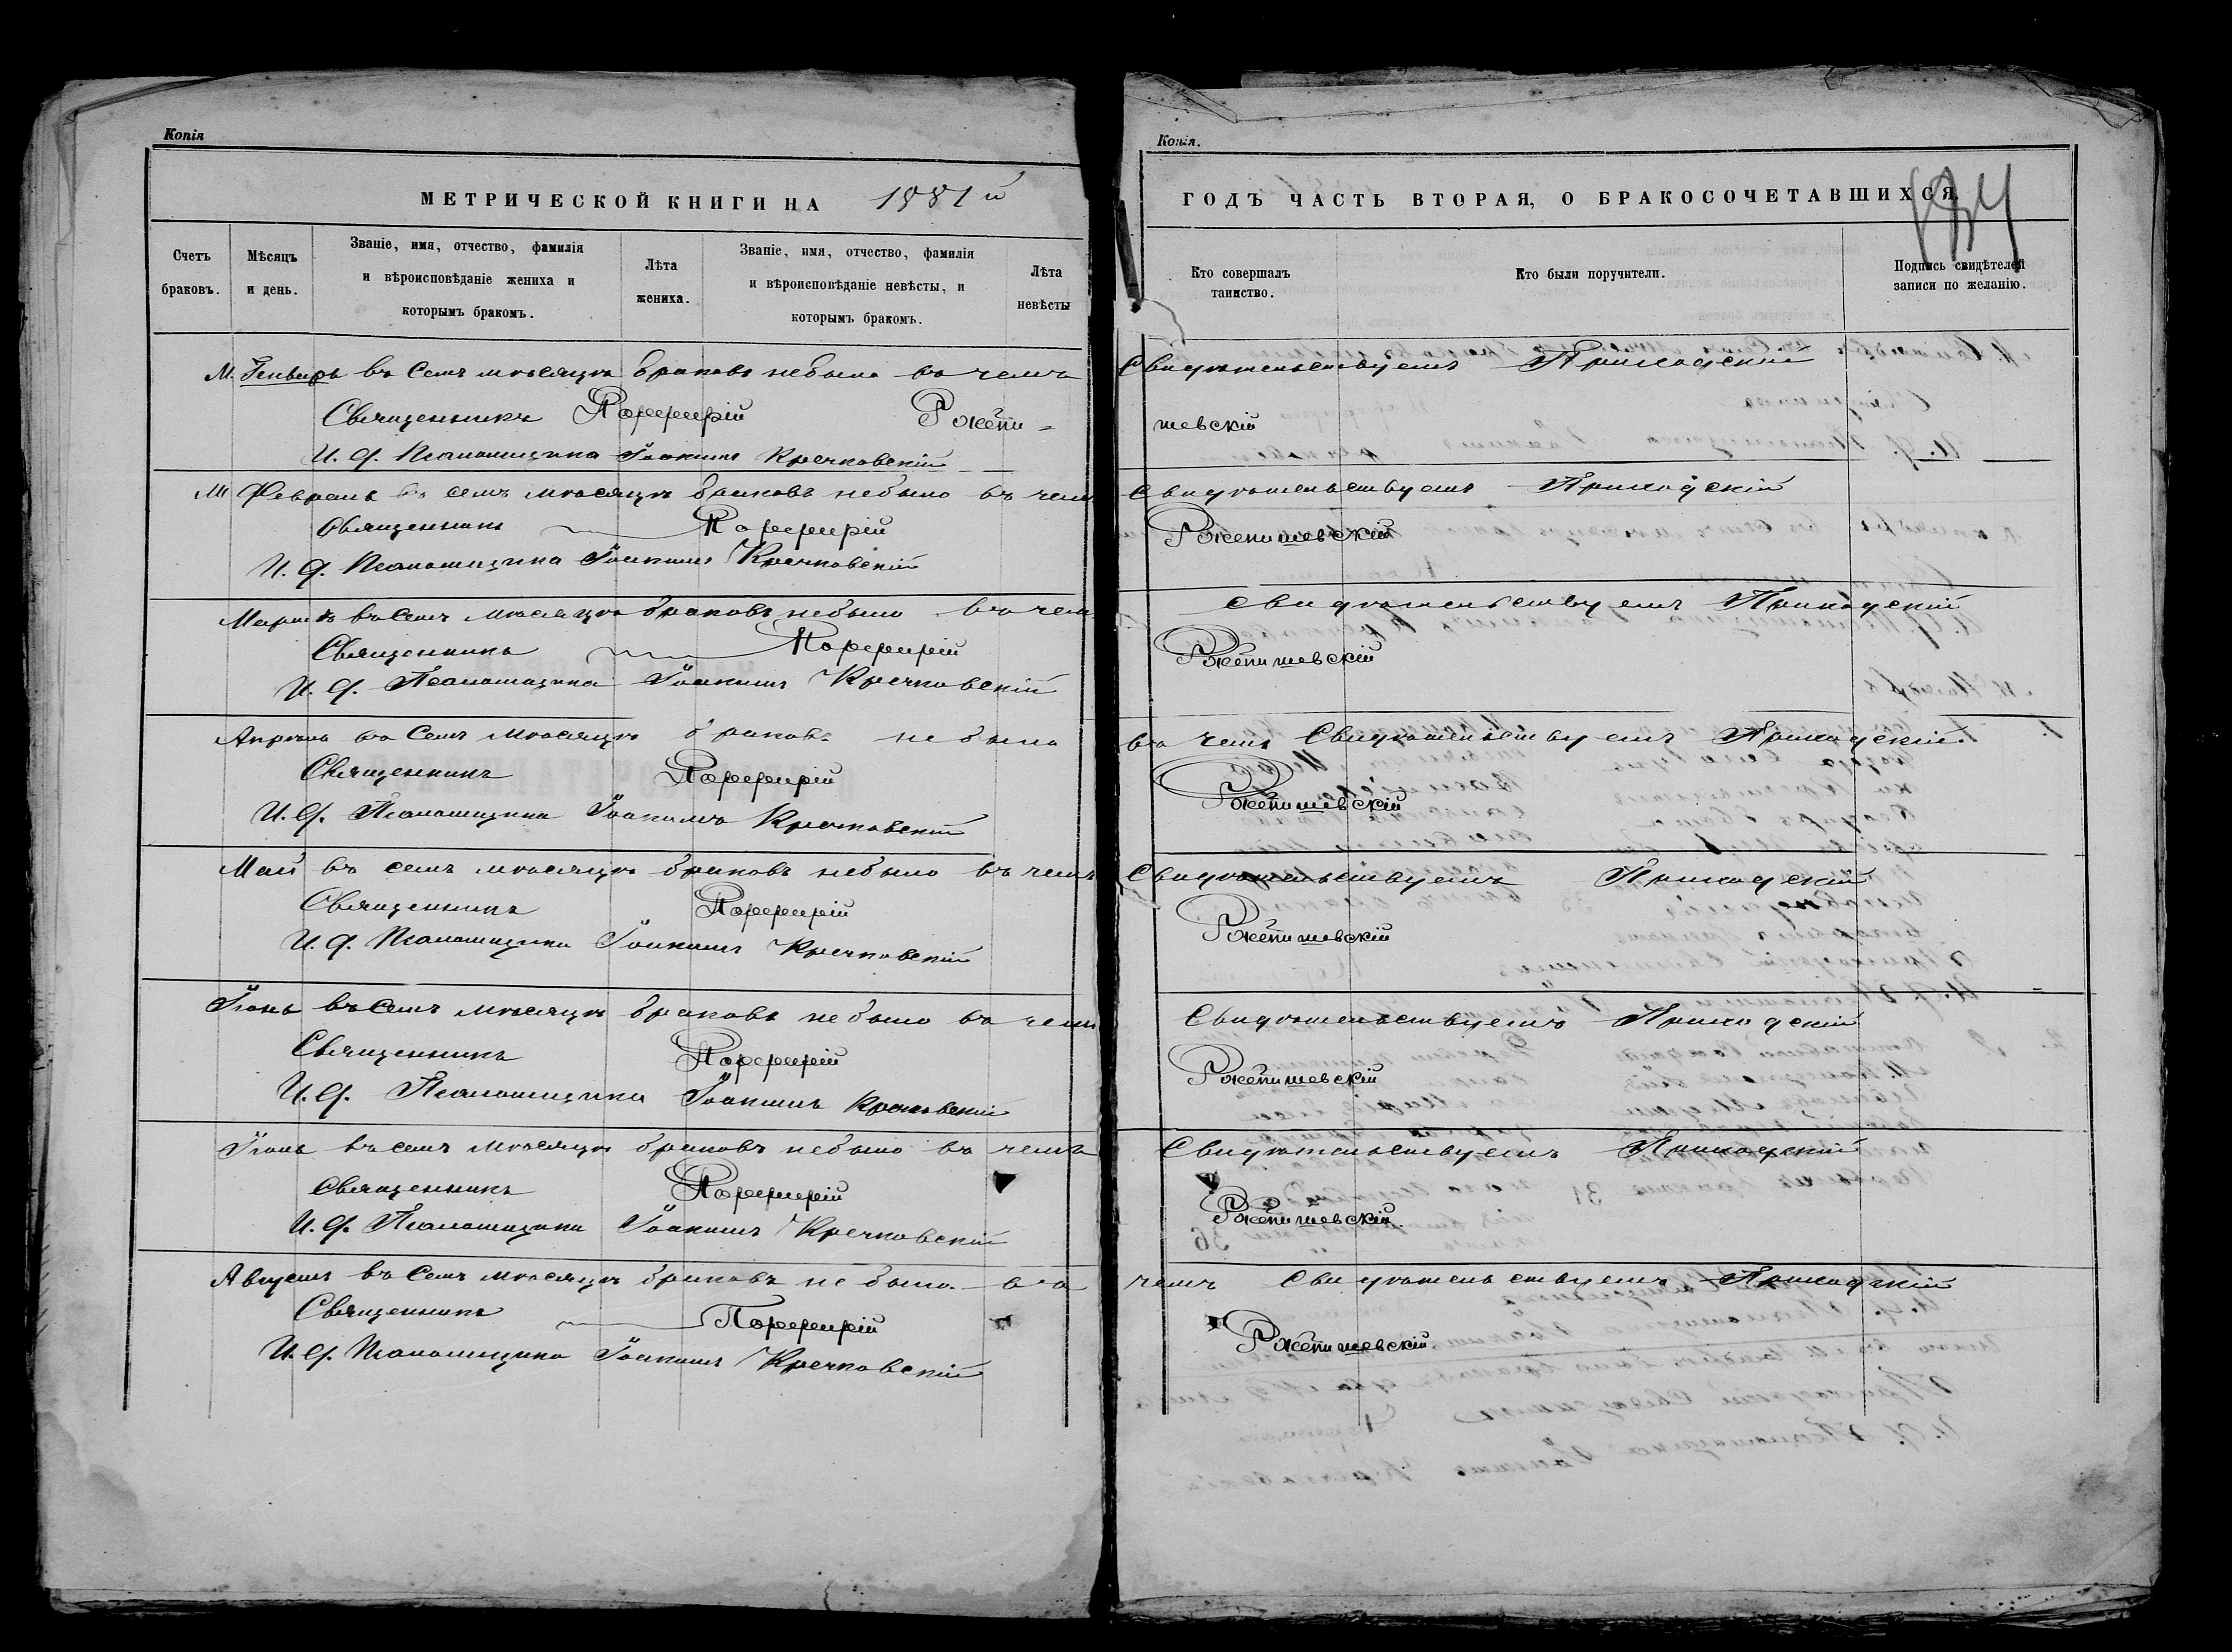 Копія
МЕТРИЧЕСКОЙ КНИГИ НА 1881й
Счетъ браковъ.
Мѣсяцъ и день.
Званіе, имя, отчество, фамилія и вѣроисповѣданіе жениха и которымъ бракомъ.
Лѣта жениха.
Званіе, имя, отчество, фамилія и вѣроисповѣданіе невѣсты, и которымъ бракомъ.
Лѣта невѣсты
М. Генварь въ семъ мѣсяцѣ браковъ небыло въ чемъ
Священникъ Порфирій Ржепи-
И. д. Псаломщика Іоакимъ Кречковскій
М Февраль въ семъ мѣсяцѣ браковъ небыло въ чемъ
Священникъ Порфирій
И. д. Псаломщика Іоакимъ Кречковскій
Мартъ въ семъ мѣсяцѣ браковъ небыло въ чемъ
Священникъ Порфирій
И. д. Псаломщика Іоакимъ Кречковскій
Апрѣль въ семъ мѣсяцѣ браковъ не было
Священникъ Порфирій
И. д. Псаломщика Іоакимъ Кречковскій
Май въ семъ мѣсяцѣ браковъ небыло въ чемъ
Священникъ Порфирій
И. д. Псаломщика Іоакимъ Кречковскій
Іюнь въ семъ мѣсяцѣ браковъ не было въ чемъ
Священникъ Порфирій
И. д. Псаломщика Іоакимъ Кречковскій
Іюль въ семъ мѣсяцѣ браковъ небыло въ чемъ
Священникъ Порфирій
И. д. Псаломщика Іоакимъ Кречковскій
Августъ въ семъ мѣсяцѣ браковъ не было въ
Священникъ Порфирій
И. д. Псаломщика Іоакимъ Кречковскій
Копія.
ГОДЪ ЧАСТЬ ВТОРАЯ, О БРАКОСОЧЕТАВШИХСЯ.
Кто совершалъ таинство.
Кто были поручители.
Подпись свидѣтелей записи по желанію.
Свидѣтельствуемъ Приходскій
шевскій
Свидѣтельствуемъ Приходскій
Ржепишевскій
Свидѣтельствуемъ Приходскій
Ржепишевскій
въ чемъ Свидѣтельствуемъ Приходскій.
Ржепишевскій
Свидѣтельствуемъ Приходскій
Ржепишевскій
Свидѣтельствуемъ Приходскій
Ржепишевскій
Свидѣтельствуемъ Приходскій
Ржепишевскій.
чемъ Свидѣтельствуемъ Приходскій
Ржепишевскій